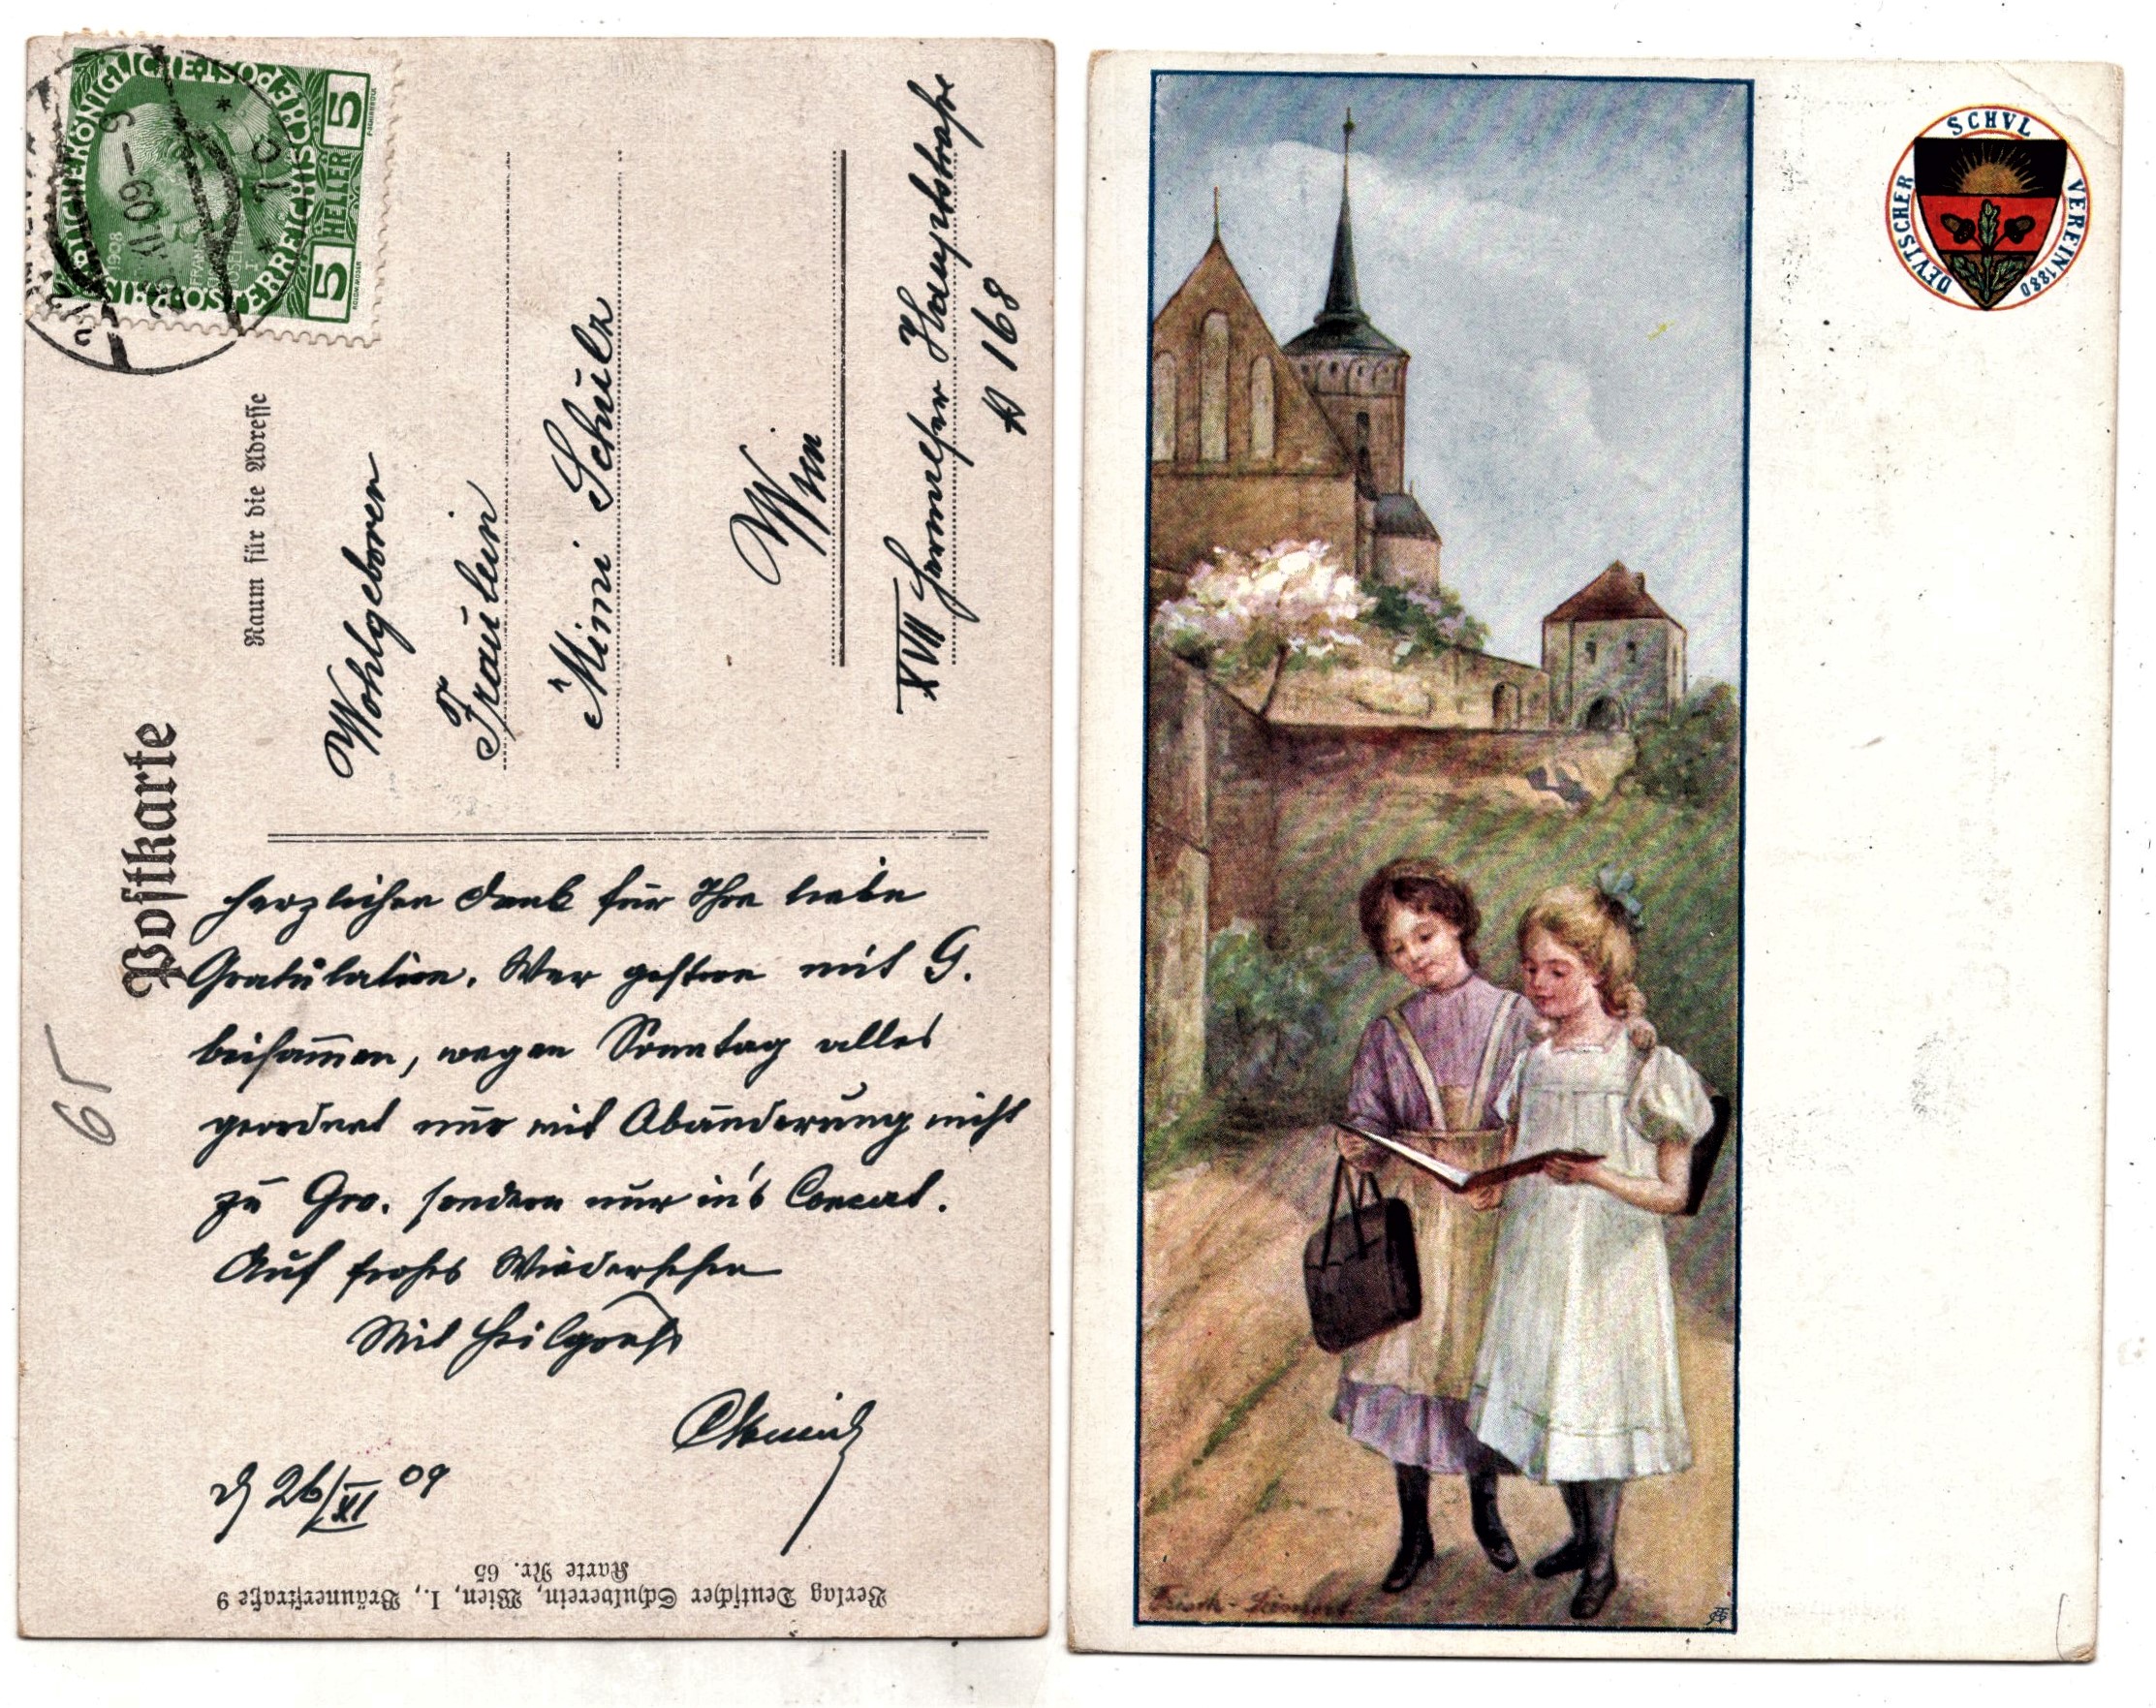 Postkarte
Raum für die Adresse
KAISERLICHE KÖNIGLICHE ÖSTERREICHISCHE POST
1908
FRANZ
JOSEF I
5 HELLER 5
Wohlgeboren
Fräulein
Mimi Schulz
Wien
XVII Hernalser Hauptstraße
N 168
65
Herzlichen Dank für Ihre liebe
Gratulation. War gestern mit G.
beisam̅en, wegen Sonntag alles
geordnet nur mit Abänderung nicht
zu Gro. sondern nur in's Concert.
Auf frohes Wiedersehen
Mit Heilgruß
d 26/XI 09
Verlag Deutscher Schulverein, Wien, I., Bräunerstraße 9
Karte Nr. 65
DEVTSCHER SCHVL VEREIN 1880